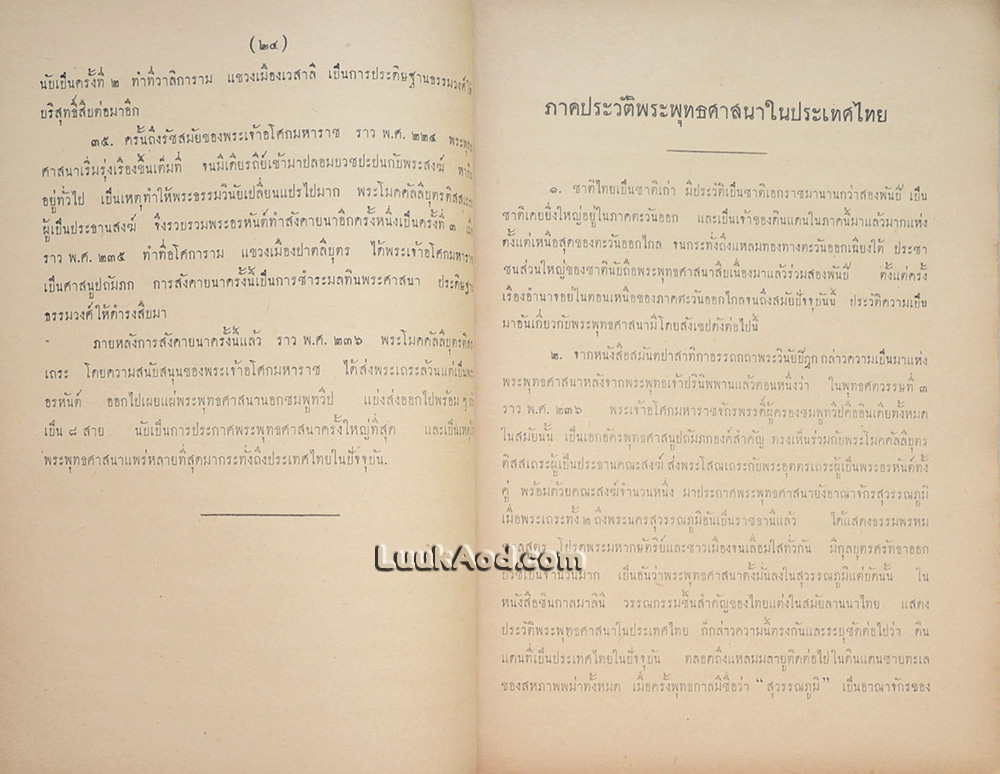 (๒๔)
นับเป็นครั้งที่ ๒ ทำที่วาลิการาม แขวงเมืองเวสาลี เป็นการประดิษฐานธรรมวงศ์ให้
บริสุทธิ์สืบต่อมาอีก
๓๕. ครั้นถึงรัชสมัยของพระเจ้าอโศกมหาราช ราว พ.ศ. ๒๒๔ พระพุทธ
ศาสนาเริ่มรุ่งเรืองขึ้นเต็มที่ จนมีเดียรถีย์เข้ามาปลอมบวชปะปนกับพระสงฆ์
อยู่ทั่วไป เป็นเหตุทำให้พระธรรมวินัยเปลี่ยนแปรไปมาก พระโมคคัลลีบุตรติสสเถระ
ผู้เป็นประธานสงฆ์ จึงรวบรวมพระอรหันต์ทำสังคายนาอีกครั้งหนึ่งเป็นครั้งที่ ๓ เมื่อ
ราว พ.ศ. ๒๓๕ ทำที่อโศการาม แขวงเมืองปาตลีบุตร ได้พระเจ้าอโศกมหาราช
เป็นศาสนูปถัมภก การสังคายนาครั้งนี้เป็นการชำระมลทินพระศาสนา ประดิษฐาน
ธรรมวงศ์ให้ดำรงสืบมา
ภายหลังการสังคายนาครั้งนี้แล้ว ราว พ.ศ. ๒๓๖ พระโมคคัลลีบุตรติสส
เถระ โดยความสนับสนุนของพระเจ้าอโศกมหาราช ได้ส่งพระเถระล้วนแต่เป็นพระ
อรหันต์ ออกไปเผยแผ่พระพุทธศาสนานอกชมพูทวีป แบ่งส่งออกไปพร้อม ๆ กัน
เป็น ๘ สาย นับเป็นการประกาศพระพุทธศาสนาครั้งใหญ่ที่สุด และเป็นเหตุให้
พระพุทธศาสนาแพร่หลายที่สุดมากระทั่งถึงประเทศไทยในปัจจุบัน.
ภาคประวัติพระพุทธศาสนาในประเทศไทย
๑. ชาติไทยเป็นชาติเก่า มีประวัติเป็นชาติเอกราชมานานกว่าสองพันปี เป็น
ชาติเคยยิ่งใหญ่อยู่ในภาคตะวันออก และเป็นเจ้าของดินแดนในภาคนี้มาแล้วมากแห่ง
ตั้งแต่เหนือสุดของตะวันออกไกล จนกระทั่งถึงแหลมทองทางตะวันออกเฉียงใต้ ประชา
ชนส่วนใหญ่ของชาตินับถือพระพุทธศาสนาสืบเนื่องมาแล้วร่วมสองพันปี ตั้งแต่ครั้ง
เรืองอำนาจอยู่ในตอนเหนือของภาคตะวันออกไกลจนถึงสมัยปัจจุบันนี้ ประวัติความเป็น
มาอันเกี่ยวกับพระพุทธศาสนามีโดยสังเขปดังต่อไปนี้
๒. จากหนังสือสมันตปาสาทิกาอรรถกถาพระวินัยปิฎก กล่าวความเป็นมาแห่ง
พระพุทธศาสนาหลังจากพระพุทธเจ้าปรินิพพานแล้วตอนหนึ่งว่า ในพุทธศตวรรษที่ ๓
ราว พ.ศ. ๒๓๖ พระเจ้าอโศกมหาราชจักรพรรดิผู้ครองชมพูทวีปคืออินเดียทั้งหมด
ในสมัยนั้น เป็นเอกอัครพุทธศาสนูปถัมภกองค์สำคัญ ทรงเห็นร่วมกับพระโมคคัลลีบุตร
ติสสเถระผู้เป็นประธานคณะสงฆ์ ส่งพระโสณเถระกับพระอุตตรเถระผู้เป็นพระอรหันต์ทั้ง
คู่ พร้อมด้วยคณะสงฆ์จำนวนหนึ่ง มาประกาศพระพุทธศาสนายังอาณาจักรสุวรรณภูมิ
เมื่อพระเถระทั้ง ๒ ถึงพระนครสุวรรณภูมิอันเป็นราชธานีแล้ว ได้แสดงธรรมพรหม
ชาลสูตร โปรดพระมหากษัตริย์และชาวเมืองจนเลื่อมใสทั่วกัน มีกุลบุตรศรัทธาออก
บวชเป็นจำนวนมาก เป็นอันว่าพระพุทธศาสนาตั้งมั่นลงในสุวรรณภูมิแต่บัดนั้น ใน
หนังสือชินกาลมาลินี วรรณกรรมชิ้นสำคัญของไทยแต่งในสมัยลานนาไทย แสดง
ประวัติพระพุทธศาสนาในประเทศไทย ก็กล่าวความนี้ตรงกันและระบุชัดต่อไปว่า ดิน
แดนที่เป็นประเทศไทยในปัจจุบัน ตลอดถึงแหลมมลายูติดต่อไปในดินแดนชายทะเล
ของสหภาพพม่าทั้งหมด เมื่อครั้งพุทธกาลมีชื่อว่า “สุวรรณภูมิ” เป็นอาณาจักรของ
LuukAod.com